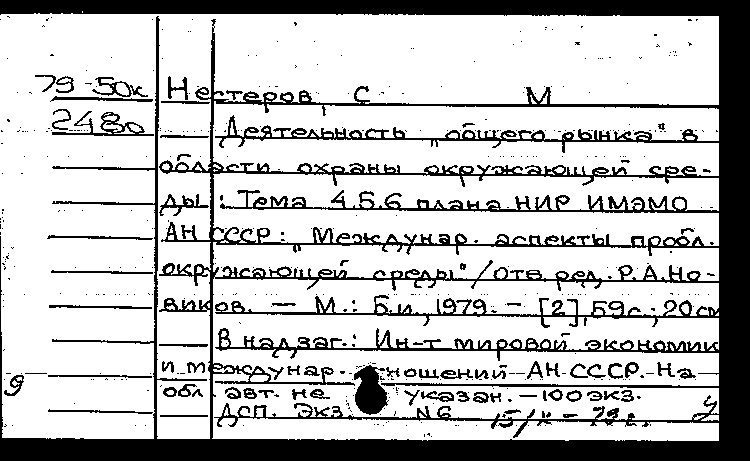 79-50к Нестеров, С М
2480 Деятельность „общего рынка" в
области охраны окружающей сре-
ды : Тема 4.5.6 плана НИР ИМЭМО
АН СССР : „Междунар. аспекты пробл.
окружающей среды" / Отв. ред. Р.А.Но-
виков. — М.: Б.и., 1979. — [2], 59с.; 20см
В надзаг.: Ин-т мировой экономик
и междунар. отношений АН СССР. На
9 обл. авт. не указан. — 100 экз. у
ДСП. Экз. N6